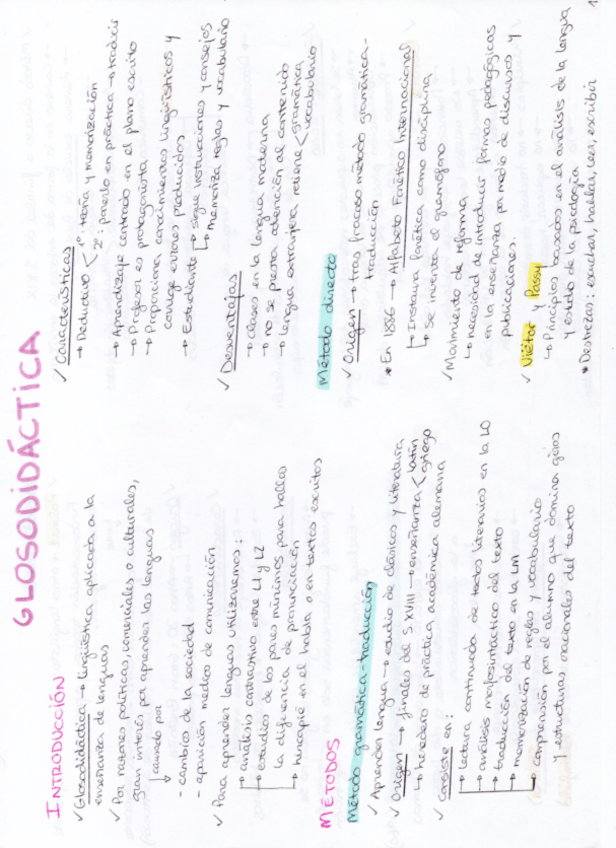 GLOSODIDÁCTICA
INTRODUCCIÓN
✓ Glosodidáctica → lingüística aplicada a la
enseñanza de lenguas
✓ Por razones políticas, comerciales o culturales,
gran interés por aprender las lenguas
causado por
- cambios de la sociedad
- aparición medios de comunicación
✓ Para aprender lenguas utilizaremos:
→ análisis contrastivo entre L1 y L2
→ estudios de los pares mínimos para hallar
la diferencia de pronunciación
→ hincapié en el habla o en textos escritos
MÉTODOS
Método gramática-traducción
✓ Aprender lengua → estudio de clásicos y literatura
✓ Origen → finales del S.XVIII → enseñanza < latín
griego
↳ heredero de práctica académica alemana
✓ Consiste en:
→ lectura continuada de textos literarios en la LO
→ análisis morfosintáctico del texto
→ traducción del texto en la LM
→ memorización de reglas y vocabulario
→ comprensión por el alumno que domina giros
y estructuras oracionales del texto
✓ Características
→ Deductivo < 1º: teoría y memorización
2º: ponerlo en práctica → traducir
→ Aprendizaje centrado en el plano escrito
→ Profesor es protagonista
→ Proporciona conocimientos lingüísticos y
corrige errores producidos.
→ Estudiante → sigue instrucciones y consejos
↳ memoriza reglas y vocabulario
✓ Desventajas
→ clases en la lengua materna
→ no se presta atención al contenido
→ lengua extranjera retiene < gramática
vocabulario
Método directo
✓ Origen → tras fracaso método gramática-
traducción
* En 1886 → Alfabeto Fonético Internacional
↳ Instaura fonética como disciplina
↳ Se inventa el gramófono
✓ Movimiento de reforma
↳ necesidad de introducir formas pedagógicas
en la enseñanza por medio de discursos y
publicaciones.
✓ Viëtor y Passy
↳ Principios basados en el análisis de la lengua
y estudio de la psicología
* Destrezas: escuchar, hablar, leer, escribir
1